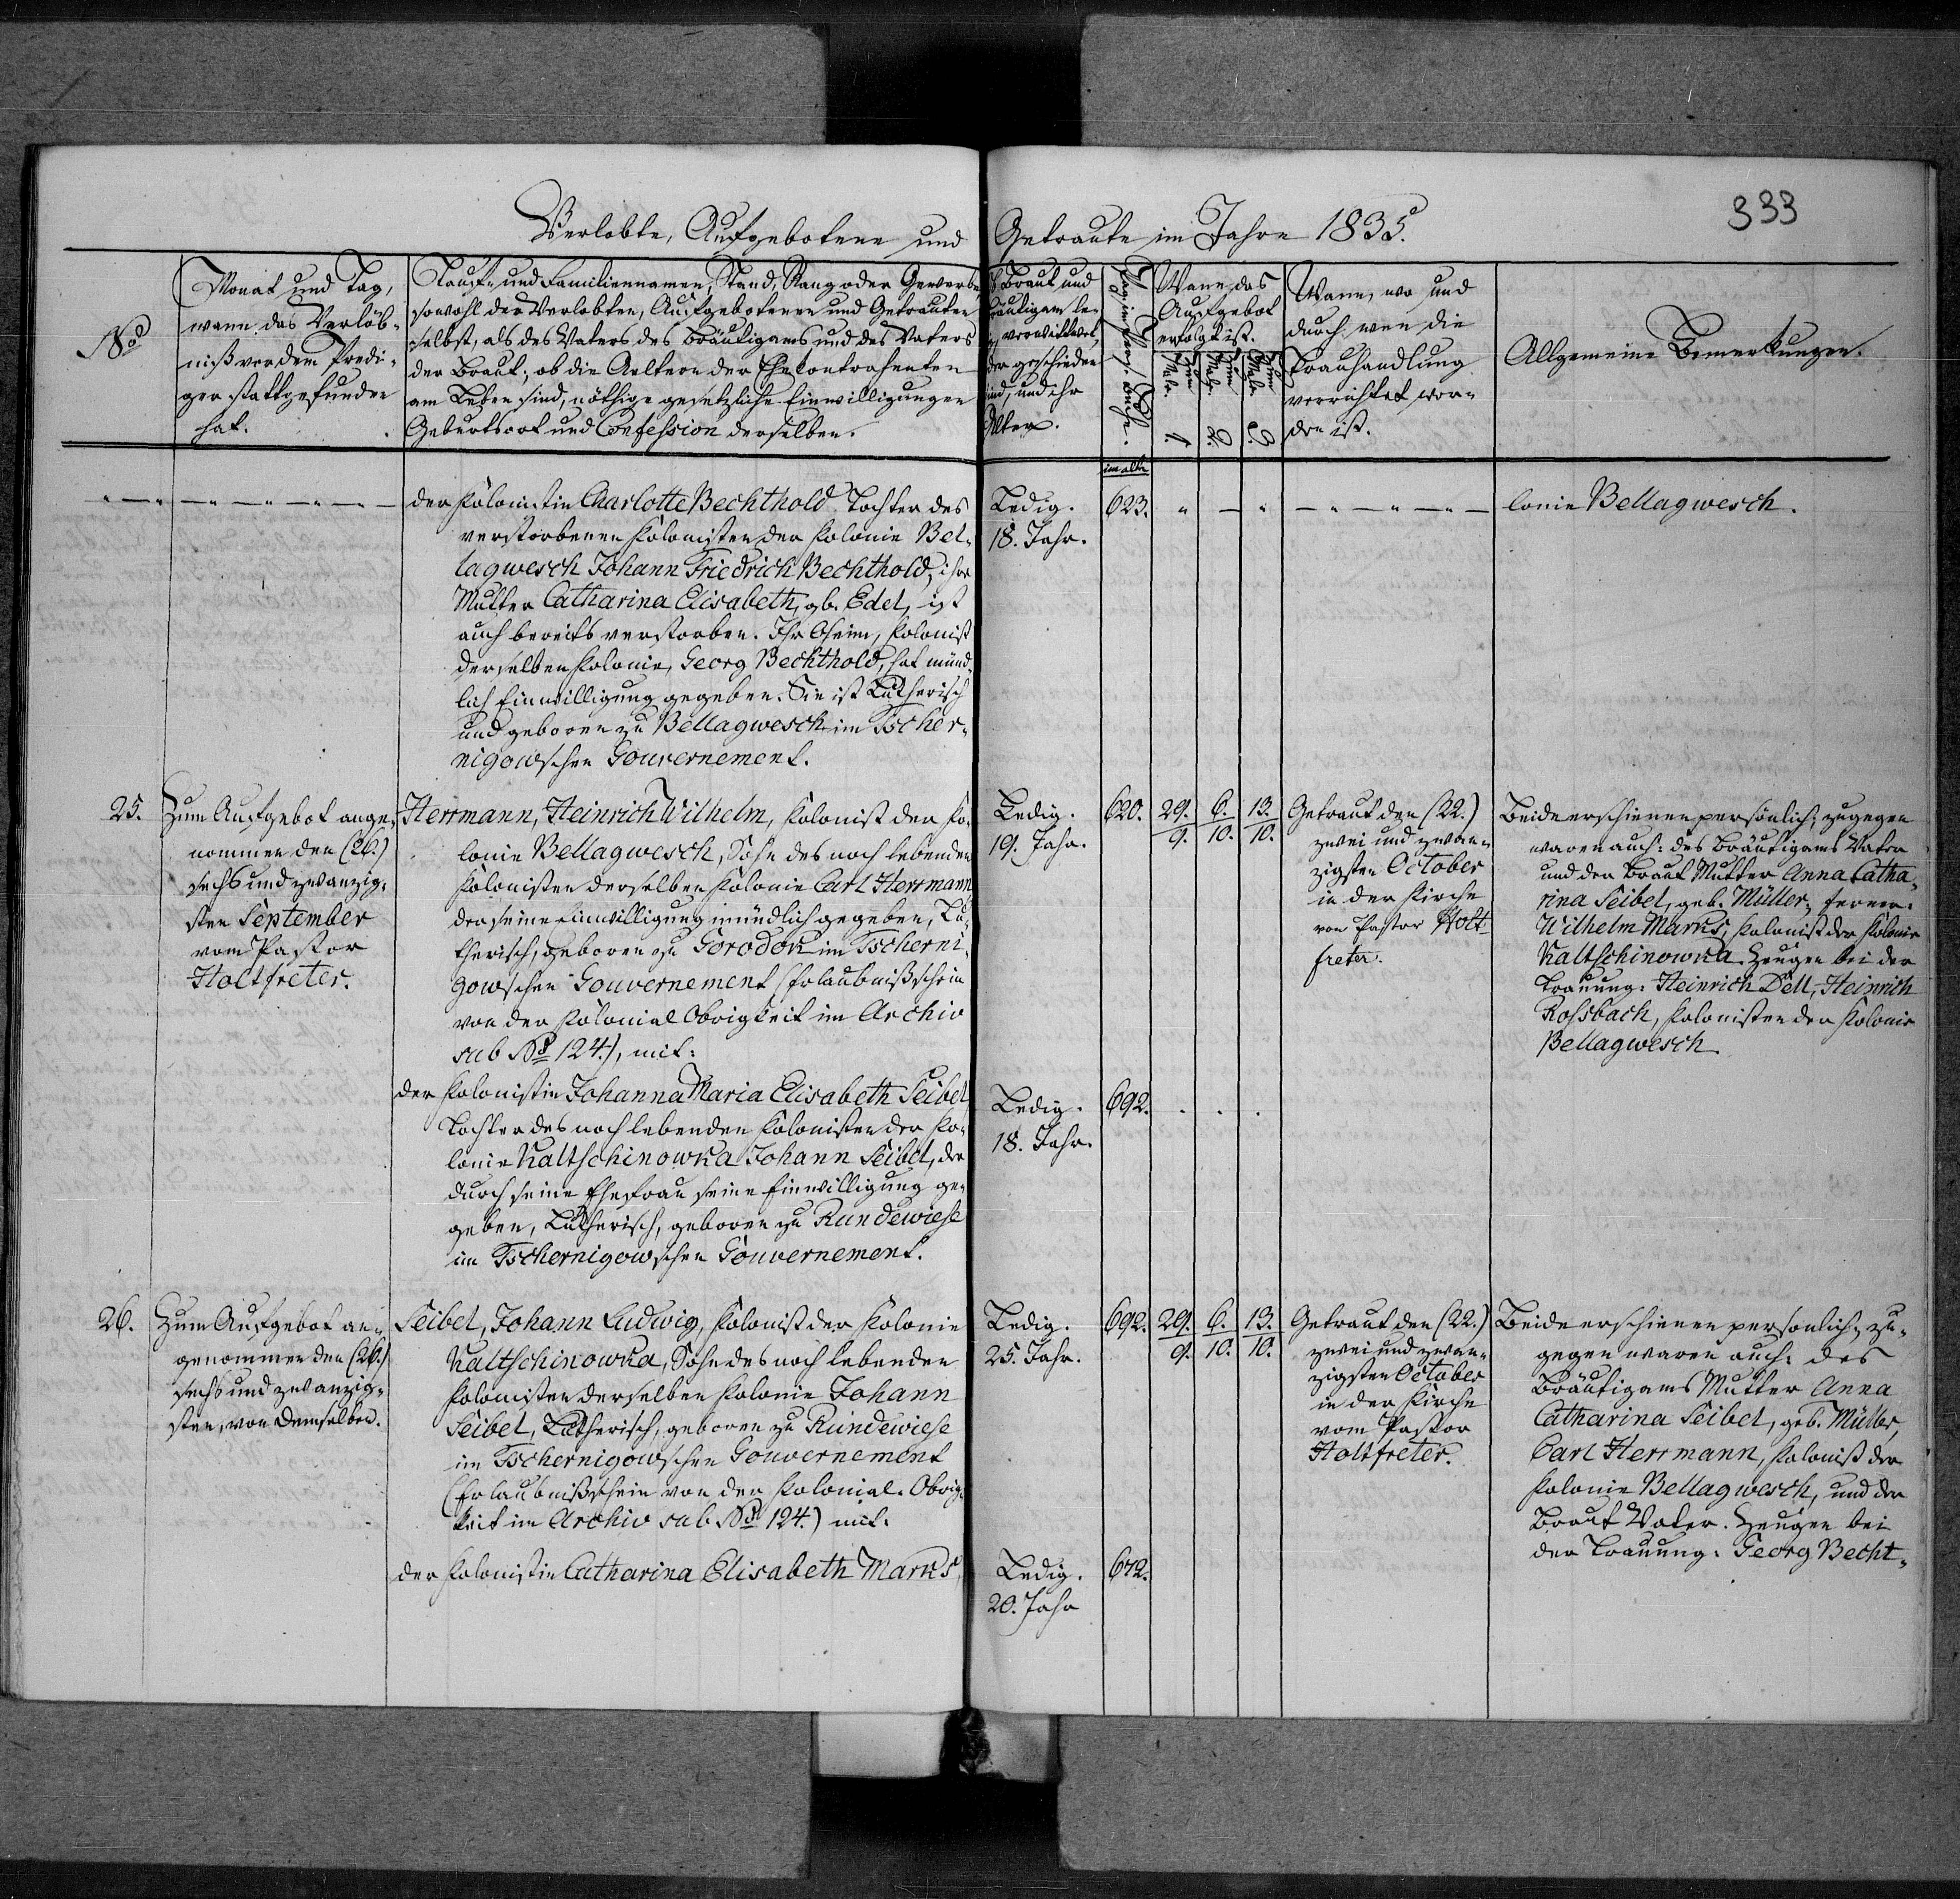 333
Verlobte, Aufgebotene und Getraute im Jahre 1835.
No
Monat und Tag,
wann das Verlöb-
niß vor dem Predi-
ger stattgefunden
hat.
Tauf- und Familiennamen, Stand, Rang oder Gewerbe,
sowohl der Verlobten, Aufgebotenen und Getrauten
selbst, als des Vaters des Bräutigams und des Vaters
der Braut; ob die Aeltern der Ehecontrahenten
am Leben sind, nöthige gesetzliche Einwilligungen
Geburtsort und Confession derselben.
Braut und
Bräutigam le-
dig, verwittwet,
oder geschieden
sind, und ihr
Alter.
Pag. im Pers. Buche.
Wann das
Aufgebot
erfolgt ist.
Zum 1. Male.
Zum 2. Male.
Zum 3. Male.
Wann, wo und
durch wen die
Trauhandlung
verrichtet wor-
den ist.
Allgemeine Bemerkungen.
der Kolonistin Charlotte Bechthold Tochter des
verstorbenen Kolonisten der Kolonie Bel-
lagwesch Johann Friedrich Bechthold, ihre
Mutter Catharina Elisabeth, gb. Edel, ist
auch bereits verstorben. Ihr Oheim, Kolonist
derselben Kolonie, Georg Bechthold, hat münd-
lich Einwilligung gegeben. Sie ist Lutherisch
und geboren zu Bellagwesch im Tscher-
nigowschen Gouvernement.
Ledig.
18. Jahr.
im alten
623.
lonie Bellagwesch.
25.
Zum Aufgebot ange-
nommen den (26.)
sechs und zwanzig-
sten September
vom Pastor
Holtfreter.
Herrmann, Heinrich Wilhelm, Kolonist der Ko-
lonie Bellagwesch, Sohn des noch lebenden
Kolonisten derselben Kolonie Carl Herrmann
der seine Einwilligung mündlich gegeben, Lu-
therisch, geboren zu Gorodok im Tscherni-
gowschen Gouvernement (Erlaubnißschein
von der Kolonial Obrigkeit im Archiv
sub No 124.), mit:
Ledig.
19. Jahr.
620.
29. 6. 13.
9. 10. 10.
Getraut den (22.)
zwei und zwan-
zigsten October
in der Kirche
von Pastor Holt-
freter.
Beide erschienen persönlich; zugegen
waren auch: des Bräutigams Vater
und der Braut Mutter Anna Catha-
rina Seibel, geb. Müller; ferner:
Wilhelm Marks, Kolonist der Kolonie
Kaltschinowka. Zeugen bei der
Trauung: Heinrich Dell, Heinrich
Rossbach, Kolonisten der Kolonie
Bellagwesch.
der Kolonistin Johanna Maria Elisabeth Seibel
Tochter des noch lebenden Kolonisten der Ko-
lonie Kaltschinowka Johann Seibel, der
durch seine Ehefrau seine Einwilligung ge-
geben, Lutherisch, geboren zu Rundewiese
im Tschernigowschen Gouvernement.
Ledig.
18. Jahr.
692.
26.
Zum Aufgebot an-
genommen den (26.)
sechs und zwanzig-
sten, von demselben.
Seibel, Johann Ludwig, Kolonist der Kolonie
Kaltschinowka, Sohn des noch lebenden
Kolonisten derselben Kolonie Johann
Seibel, Lutherisch, geboren zu Rundewiese
im Tschernigowschen Gouvernement
(Erlaubnißschein von der Kolonial-Obrig-
keit im Archiv sub No 124.) mit:
Ledig.
25. Jahr.
692.
29. 6. 13.
9. 10. 10.
Getraut den (22.)
zwei und zwan-
zigsten October
in der Kirche
vom Pastor
Holtfreter.
Beide erschienen persönlich; zu-
gegen waren auch: des
Bräutigams Mutter Anna
Catharina Seibel, geb. Müller,
Carl Herrmann, Kolonist der
Kolonie Bellagwesch, und der
Braut Vater. Zeugen bei
der Trauung: Georg Becht-
der Kolonistin Catharina Elisabeth Marks,
Ledig.
20. Jahr
672.